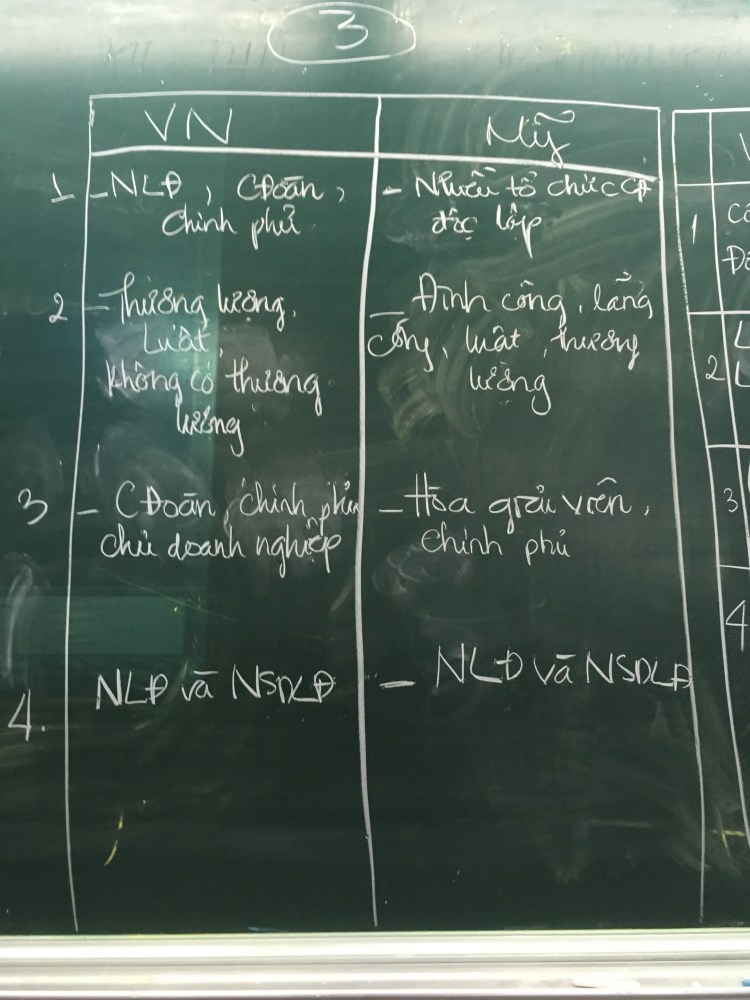 3
VN
Mỹ
1 - NLĐ, CĐoàn,
chính phủ
- Nhiều tổ chức CĐ
độc lập
2 - Thương lượng,
Luật,
không có thương
lượng
- Đình công, lãng
công, luật, thương
lượng
3 - CĐoàn, chính phủ
chủ doanh nghiệp
- Hòa giải viên,
chính phủ
4. NLĐ và NSDLĐ
- NLĐ và NSDLĐ
V
1
2
L
L
3
4